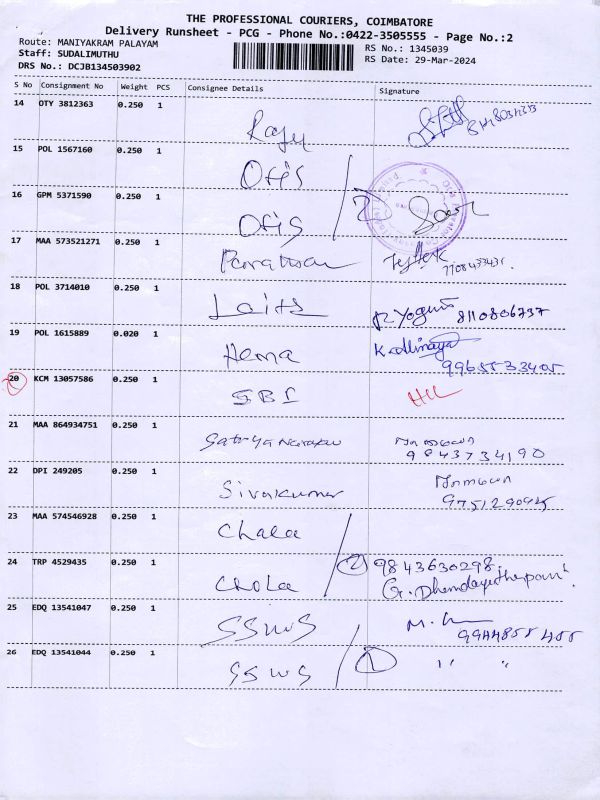 THE PROFESSIONAL COURIERS, COIMBATORE
Delivery Runsheet - PCG - Phone No.:0422-3505555 - Page No.:2
Route: MANIYAKRAM PALAYAM RS No.: 1345039
Staff: SUDALIMUTHU RS Date: 29-Mar-2024
DRS No.: DCJB134503902
S No Consignment No Weight PCS Consignee Details Signature
14 OTY 3812363 0.250 1 Raju
15 POL 1567160 0.250 1 Otis
16 GPM 5371590 0.250 1 Otis 2
17 MAA 573521271 0.250 1
18 POL 3714010 0.250 1 Laits R Yogu 8110806737
19 POL 1615889 0.020 1 Hema 9965533405
20 KCM 13057586 0.250 1 SBI
21 MAA 864934751 0.250 1 Satya Narayanan 9843734190
22 DPI 249205 0.250 1 Sivakumar 9751290945
23 MAA 574546928 0.250 1 Chola
24 TRP 4529435 0.250 1 Chola 2 9843630298
25 EDQ 13541047 0.250 1 SSWS 9944855455
26 EDQ 13541044 0.250 1 SSWS 1 " "